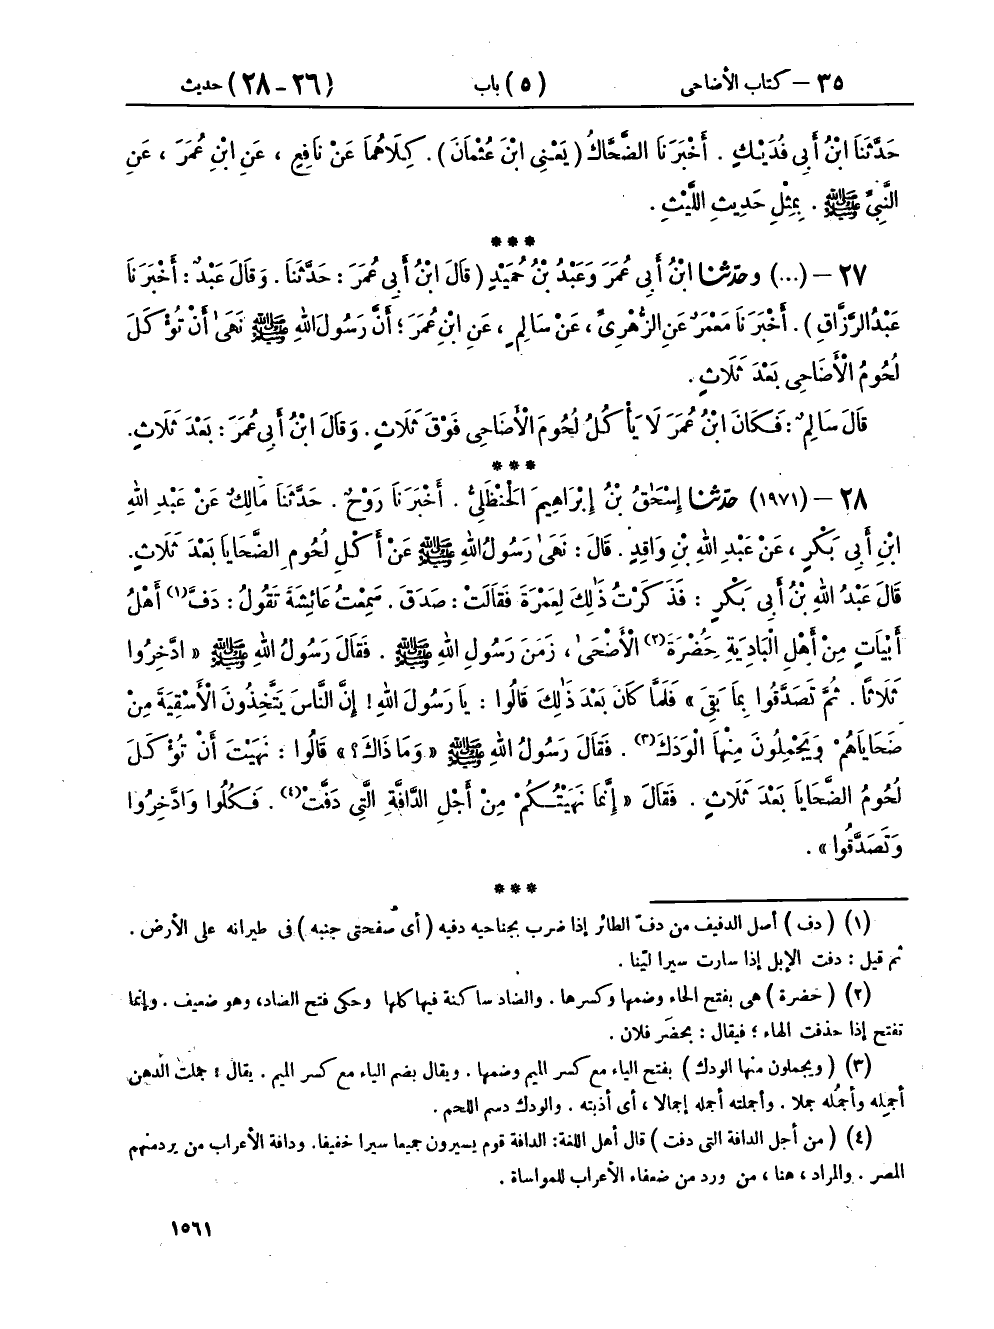 ٣٥ – كتاب الأضاحى (٥) باب (٢٦-٢٨) حديث
حَدَّثَنَا ابْنُ أَبِى فُدَيْكٍ . أَخْبَرَنَا الضَّحَّاكُ ( يَعْنِى ابْنَ عُثْمَانَ ) . كِلَاهُمَا عَنْ نَافِعٍ ، عَنِ ابْنِ عُمَرَ ، عَنِ
النَّبِىِّ ﷺ . بِمِثْلِ حَدِيثِ اللَّيْثِ .
***
٢٧ – (...) وحَدَّثَنَا ابْنُ أَبِى عُمَرَ وَعَبْدُ بْنُ حُمَيْدٍ ( قَالَ ابْنُ أَبِى عُمَرَ : حَدَّثَنَا . وَقَالَ عَبْدٌ : أَخْبَرَنَا
عَبْدُ الرَّزَّاقِ ) . أَخْبَرَنَا مَعْمَرٌ عَنِ الزُّهْرِىِّ ، عَنْ سَالِمٍ ، عَنِ ابْنِ عُمَرَ ؛ أَنَّ رَسُولَ اللهِ ﷺ نَهَىٰ أَنْ تُؤْكَلَ
لُحُومُ الْأَضَاحِى بَعْدَ ثَلَاثٍ .
قَالَ سَالِمٌ : فَكَانَ ابْنُ عُمَرَ لَا يَأْكُلُ لُحُومَ الْأَضَاحِى فَوْقَ ثَلَاثٍ . وَقَالَ ابْنُ أَبِى عُمَرَ : بَعْدَ ثَلَاثٍ .
***
٢٨ – (١٩٧١) حَدَّثَنَا إِسْحَٰقُ بْنُ إِبْرَاهِيمَ الْحَنْظَلِىُّ . أَخْبَرَنَا رَوْحٌ . حَدَّثَنَا مَالِكٌ عَنْ عَبْدِ اللهِ
ابْنِ أَبِى بَكْرٍ ، عَنْ عَبْدِ اللهِ بْنِ وَاقِدٍ . قَالَ : نَهَىٰ رَسُولُ اللهِ ﷺ عَنْ أَكْلِ لُحُومِ الضَّحَايَا بَعْدَ ثَلَاثٍ .
قَالَ عَبْدُ اللهِ بْنُ أَبِى بَكْرٍ : فَذَكَرْتُ ذَٰلِكَ لِعَمْرَةَ فَقَالَتْ : صَدَقَ . سَمِعْتُ عَائِشَةَ تَقُولُ : دَفَّ (١) أَهْلُ
أَبْيَاتٍ مِنْ أَهْلِ الْبَادِيَةِ حَِضُْرَةَ (٢) الْأَضْحَىٰ ، زَمَنَ رَسُولِ اللهِ ﷺ . فَقَالَ رَسُولُ اللهِ ﷺ « ادَّخِرُوا
ثَلَاثًا . ثُمَّ تَصَدَّقُوا بِمَا بَقِىَ » فَلَمَّا كَانَ بَعْدَ ذَٰلِكَ قَالُوا : يَا رَسُولَ اللهِ ! إِنَّ النَّاسَ يَتَّخِذُونَ الْأَسْقِيَةَ مِنْ
ضَحَايَاهُمْ وَيَجْمِلُونَ مِنْهَا الْوَدَكَ (٣) . فَقَالَ رَسُولُ اللهِ ﷺ « وَمَا ذَاكَ ؟ » قَالُوا : نَهَيْتَ أَنْ تُؤْكَلَ
لُحُومُ الضَّحَايَا بَعْدَ ثَلَاثٍ . فَقَالَ « إِنَّمَا نَهَيْتُكُمْ مِنْ أَجْلِ الدَّافَّةِ الَّتِى دَفَّتْ (٤) . فَكُلُوا وَادَّخِرُوا
وَتَصَدَّقُوا » .
***
(١) ( دف ) أصل الدفيف من دفّ الطائر إذا ضرب بجناحيه دفيه ( أى صفحتى جنبه ) فى طيرانه على الأرض .
ثم قيل : دفت الإبل إذا سارت سيرا لينا .
(٢) ( حضرة ) هى بفتح الحاء وضمها وكسرها . والضاد ساكنة فيها كلها وحكى فتح الضاد، وهو ضعيف . وإنما
تفتح إذا حذفت الهاء ؛ فيقال : بحضَر فلان .
(٣) ( ويجملون منها الودك ) بفتح الياء مع كسر الميم وضمها . ويقال بضم الياء مع كسر الميم . يقال : جملت الدهن
أجمِله وأجمُله جملا . وأجملته أجمله إجمالا ، أى أذبته . والودك دسم اللحم .
(٤) ( من أجل الدافة التى دفت ) قال أهل اللغة: الدافة قوم يسيرون جميعا سيرا خفيفا. ودافة الأعراب من يردمنهم
المصر . والمراد ، هنا ، من ورد من ضعفاء الأعراب للمواساة .
١٥٦١